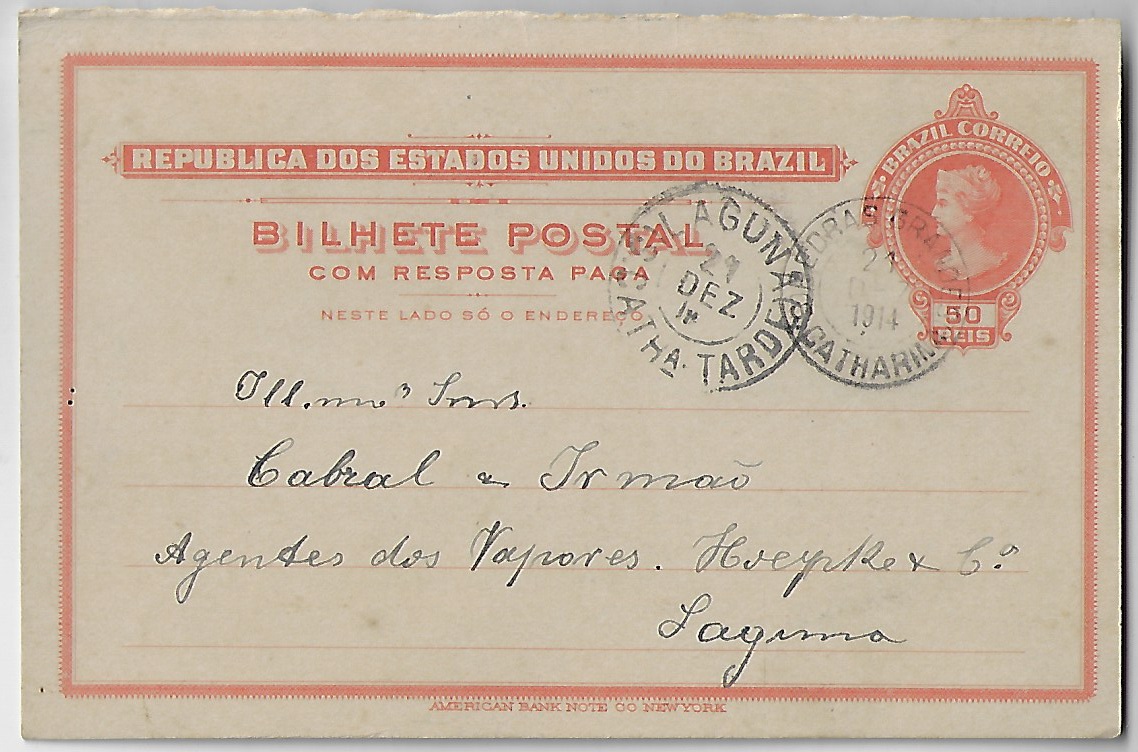 BRAZIL CORREIO
REPUBLICA DOS ESTADOS UNIDOS DO BRAZIL
BILHETE POSTAL
COM RESPOSTA PAGA
NESTE LADO SÓ O ENDEREÇO
50
REIS
LAGUNA
DEZ
TARDE
CATHA.
EDRAS GRANDES
1914
CATHARINA
Ill.mos Snrs.
Cabral & Irmão
Agentes dos Vapores. Hoepke & Cº
Laguna
AMERICAN BANK NOTE CO NEW YORK